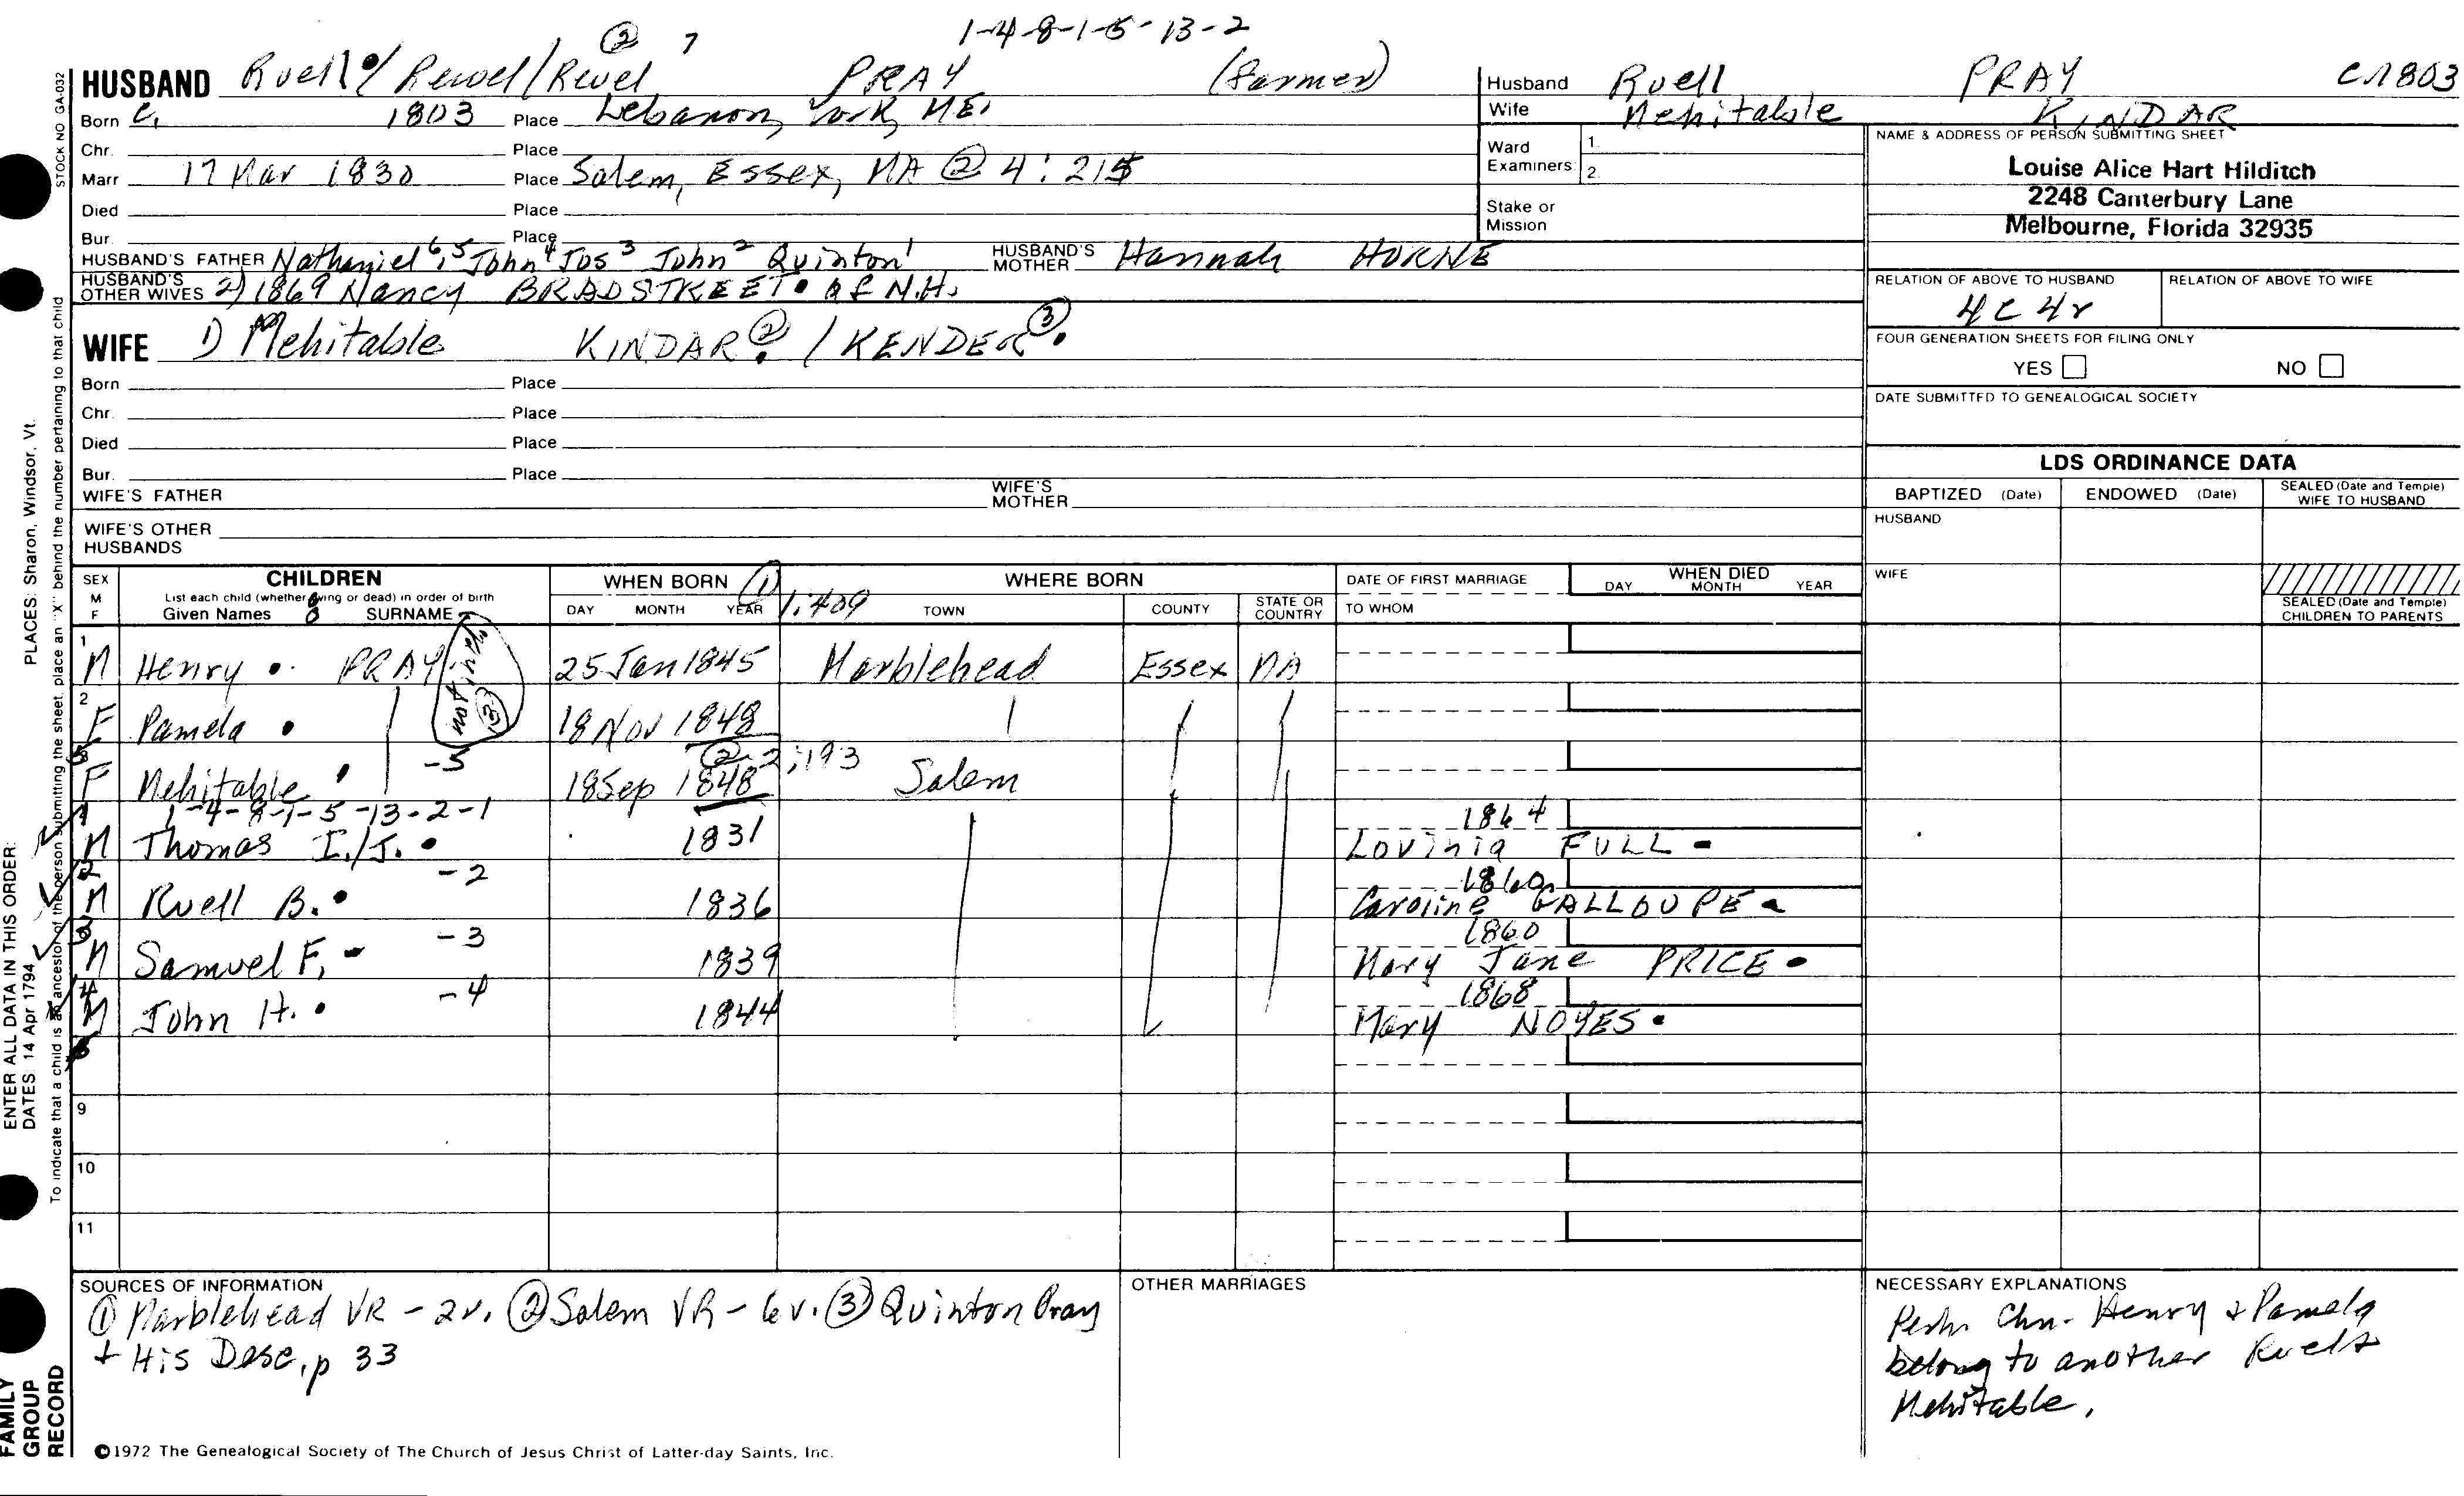 ② 7 1-4-8-1-5-13-2
HUSBAND Ruell/Rewel/Revel PRAY (Farmer)
Born C. 1803 Place Lebanon, York, ME.
Chr. Place
Marr 17 Mar 1830 Place Salem, Essex, MA ② 4:215
Died Place
Bur. Place
HUSBAND'S FATHER Nathaniel 6, 5 John 4 Jos 3 John 2 Quinton 1 HUSBAND'S MOTHER Hannah HORNE
HUSBAND'S OTHER WIVES 2) 1869 Nancy BRADSTREET of N.H.
WIFE 1) Mehitable KINDAR ② / KENDER ③
Born Place
Chr. Place
Died Place
Bur. Place
WIFE'S FATHER WIFE'S MOTHER
WIFE'S OTHER HUSBANDS
Husband Ruell PRAY C1803
Wife Mehitable KINDAR
Ward Examiners: 1. 2.
Stake or Mission
NAME & ADDRESS OF PERSON SUBMITTING SHEET
Louise Alice Hart Hilditch
2248 Canterbury Lane
Melbourne, Florida 32935
RELATION OF ABOVE TO HUSBAND RELATION OF ABOVE TO WIFE
4C 4r
FOUR GENERATION SHEETS FOR FILING ONLY
YES NO
DATE SUBMITTED TO GENEALOGICAL SOCIETY
LDS ORDINANCE DATA
BAPTIZED (Date) ENDOWED (Date) SEALED (Date and Temple) WIFE TO HUSBAND
HUSBAND
WIFE
SEALED (Date and Temple) CHILDREN TO PARENTS
SEX M F
CHILDREN
List each child (whether living or dead) in order of birth
Given Names SURNAME
WHEN BORN ① 1:409
DAY MONTH YEAR
WHERE BORN
TOWN COUNTY STATE OR COUNTRY
DATE OF FIRST MARRIAGE
TO WHOM
WHEN DIED
DAY MONTH YEAR
1 M Henry PRAY 25 Jan 1845 Marblehead Essex MA
2 F Pamela 18 Nov 1848
-5 ② 2:193
3 F Mehitable 18 Sep 1848 Salem
1-4-8-1-5-13-2-1 1864
1 M Thomas I./J. 1831 Lovinia FULL
-2 1860
2 M Ruell B. 1836 Caroline GALLOUPE
-3 1860
3 M Samuel F. 1839 Mary Jane PRICE
-4 1868
4 M John H. 1844 Mary NOYES
9
10
11
SOURCES OF INFORMATION
① Marblehead VR - 2v. ② Salem VR - 6v. ③ Quinton Pray
+ His Desc, p 33
OTHER MARRIAGES
NECESSARY EXPLANATIONS
Chn. Henry & Pamela
belong to another Ruel &
Mehitable.
©1972 The Genealogical Society of The Church of Jesus Christ of Latter-day Saints, Inc.
STOCK NO GA-032
To indicate that a child is an ancestor of the person submitting the sheet, place an "X" behind the number pertaining to that child
PLACES: Sharon, Windsor, Vt.
ENTER ALL DATA IN THIS ORDER:
DATES: 14 Apr 1794
FAMILY
GROUP
RECORD